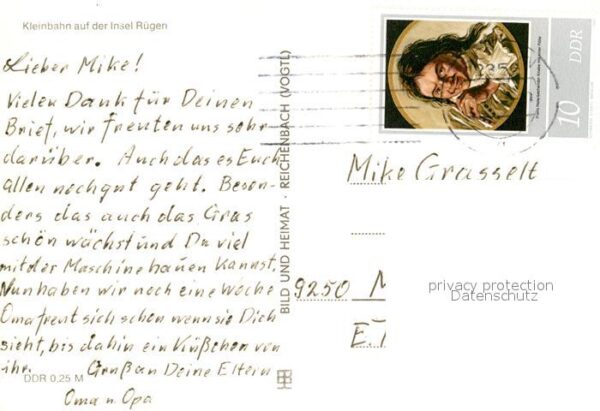 Kleinbahn auf der Insel Rügen
Lieber Mike!
Vielen Dank für Deinen
Brief, wir freuten uns sehr
darüber. Auch das es Euch
allen noch gut geht. Beson-
ders das auch das Gras
schön wächst und Du viel
mit der Maschine hauen kannst.
Nun haben wir noch eine Woche
Oma freut sich schon wenn sie Dich
sieht, bis dahin ein Küßchen von
ihr. Gruß an Deine Eltern
Oma u Opa
DDR 0,25 M
BILD UND HEIMAT · REICHENBACH (VOGTL)
DDR
10
Mike Grasselt
9250 M
E.T
privacy protection
Datenschutz